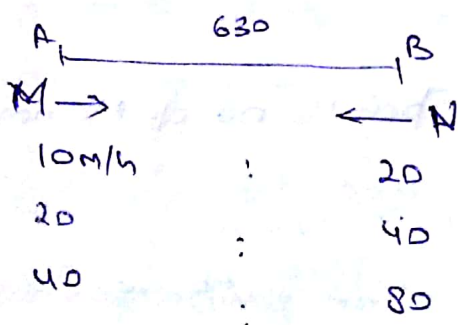 630
A B
M → ← N
10m/h : 20
20 : 40
40 : 80